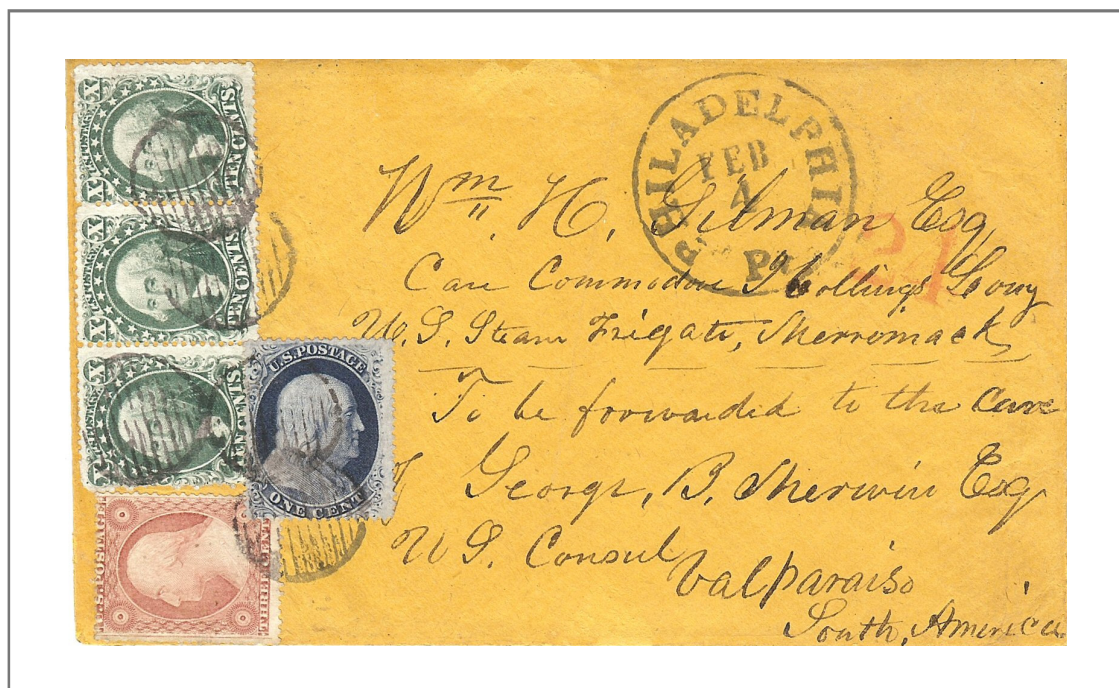 U.S. POSTAGE
X TEN CENTS X
U.S. POSTAGE
X TEN CENTS X
U.S. POSTAGE
X TEN CENTS X
U.S. POSTAGE
ONE CENT
U.S. POSTAGE
THREE CENTS
PHILADELPHIA
FEB
4
Pa
24
Wm. H. Gilman Esq
Care Commodore
U.S. Steam Frigate, Merromack
To be forwarded to the care
George, B. Merwin Esq
U S. Consul
Valparaiso
South, America